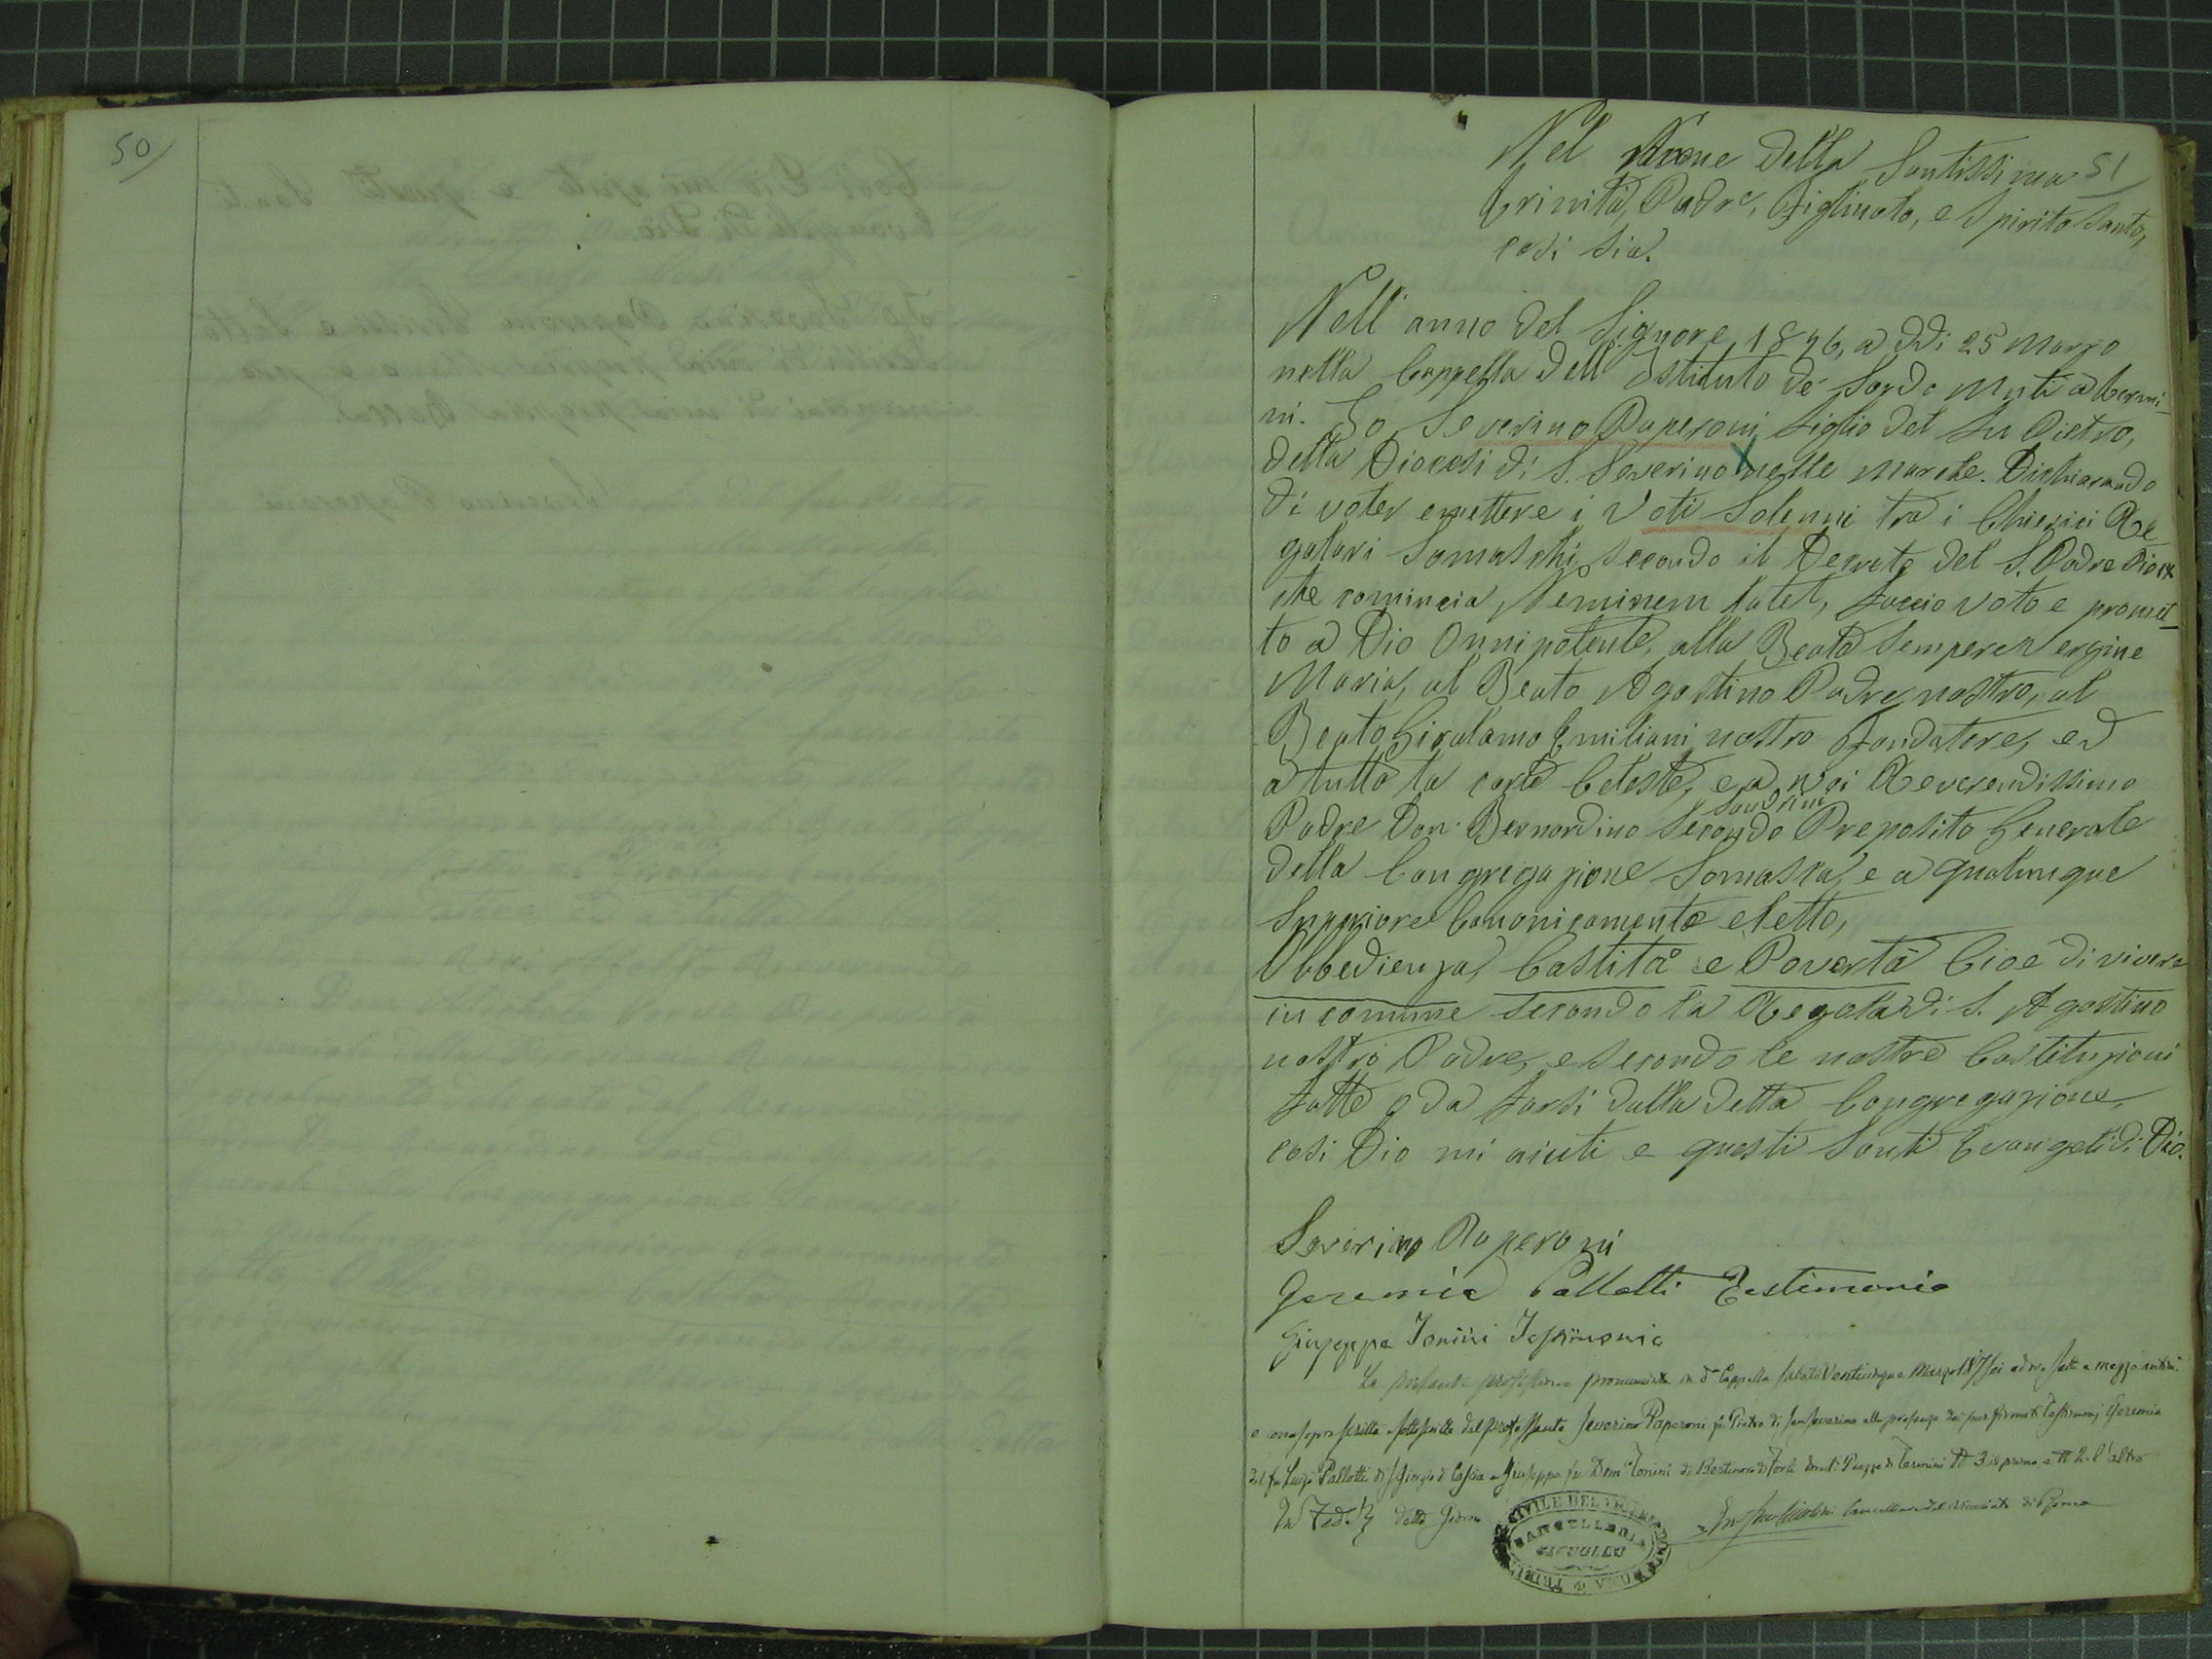 50
51
Nel Nome della Santissima
Trinità, Padre, Figliuolo, e Spirito Santo,
così sia.
Nell'anno del Signore 1876, a ddi 25 Marzo
nella Cappella dell'Istituto de' Sordo Muti a Termi-
ni. Io Severino Paperoni figlio del fu Pietro,
della Diocesi di S. Severino nelle Marche. Dichiarando
di voler emettere i Voti Solenni tra i Chierici Re
golari Somaschi, secondo il Decreto del S. Padre Pio IX
che comincia, Neminem latet, faccio voto e promet-
to a Dio Onnipotente, alla Beata sempre Vergine
Maria, al Beato Agostino Padre nostro, al
Beato Girolamo Emiliani nostro Fondatore, ed
a tutta la corte Celeste, e a voi Reverendissimo
Sandrini
Padre Don Bernardino Secondo Preposito Generale
della Congregazione Somasca, e a qualunque
Superiore Canonicamente eletto,
Obbedienza, Castità e Povertà Cioè di vivere
in comune secondo la Regola di S. Agostino
nostro Padre, e secondo le nostre Costituzioni
fatte o da farsi dalla detta Congregazione,
così Dio mi aiuti e questi Santi Evangeli di Dio.
Severino Paperoni
Geremia Pallotti Testimonio
Giuseppe Tonini Testimonio
La presente professione pronunciata in da Cappella sabato Venticinque Marzo 1876 ad ore sette e mezzo antim.
e sottoscritta dal professante Severino Paperoni fu Pietro di San Severino alla presenza dei Testimonj Geremia
del fu Luigi Pallotti di Cascia e Giuseppe fu Domo Tonini di Bertinoro di Forlì Piazza di Termini N 3 il primo e N 2 l'altro
In Fede detto Giorno
Cancelliere del Vicariato di Roma